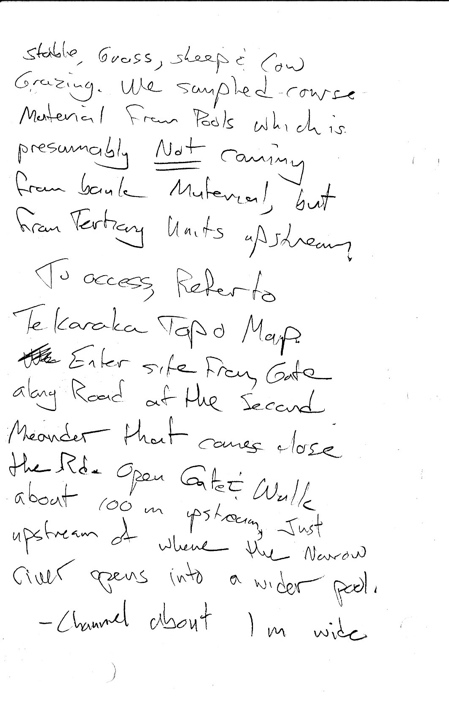 stable, Grass, sheep & Cow
Grazing. We sampled course
Material From Pools which is
presumably Not coming
from bank Material, but
from Tertiary Units upstream,
To access, Refer to
Te Karaka Topo Map.
Enter site From Gate
along Road at the Second
Meander that comes close
the Rd. Open Gate & Walk
about 100 m upstream, Just
upstream of where the Narrow
river opens into a wider pool.
- Channel about 1 m wide